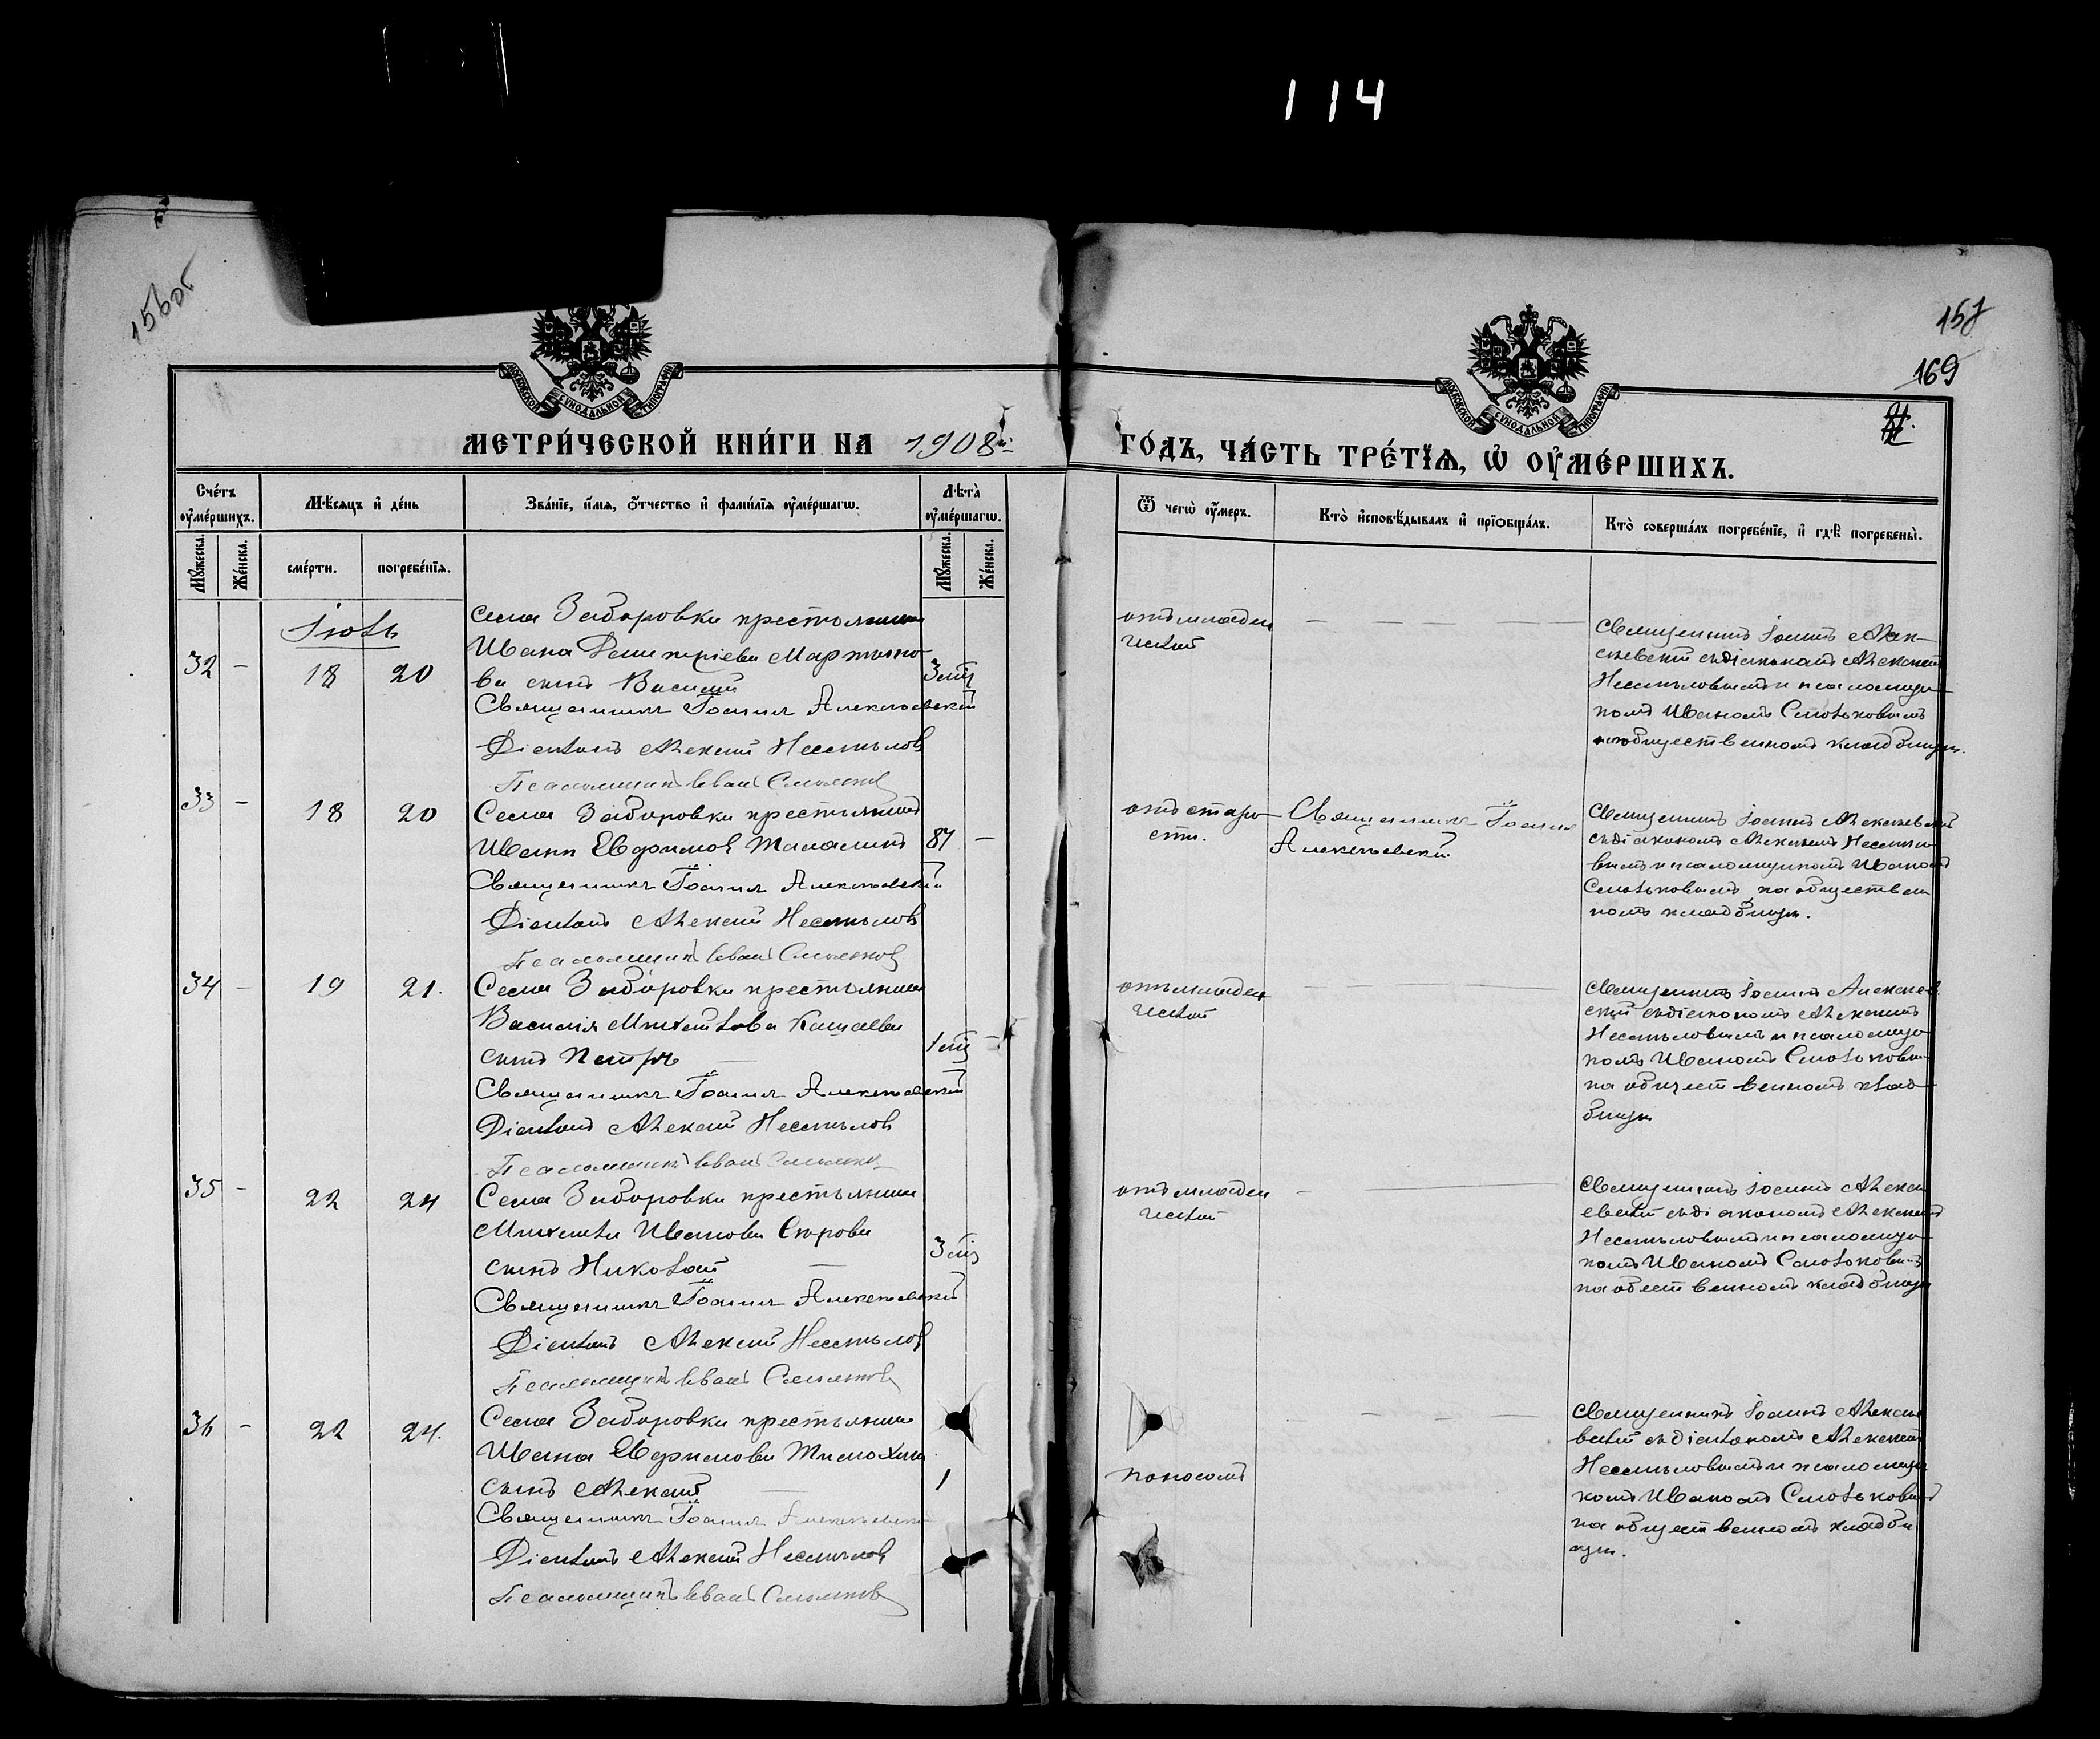 114
156об
157
169
МОСКОВСКОЙ СѴНОДАЛЬНОЙ ТИПОГРАФІИ
МОСКОВСКОЙ СѴНОДАЛЬНОЙ ТИПОГРАФІИ
МЕТРИ́ЧЕСКОЙ КНИ́ГИ НА 1908й
ГО́ДЪ, ЧА́СТЬ ТРЕ́ТІѦ, Ѡ҆ ОУ҆МЕ́РШИХЪ.
Сче́тъ оу҆ме́ршихъ.
Мѣ́сяцъ и҆ де́нь
Зва́нїе, и҆́мя, ѻ҆́тчество и҆ фами́лїя оу҆ме́ршагѡ.
Лѣ́та оу҆ме́ршагѡ.
Ѿ чегѡ̀ оу҆́меръ.
Кто̀ и҆сповѣ́дывалъ и҆ прїѻбща́лъ.
Кто̀ соверша́лъ погребе́нїе, и҆ гдѣ̀ погребены̀.
Мꙋ́жеска. Же́нска.
сме́рти. погребе́нїя.
Мꙋ́жеска. Же́нска.
Іюль
32 – 18 20
Села Заборовки крестьянина
Ивана Димитріева Мартыно-
ва сынъ Василій
3 мц
Священникъ Іоаннъ Алексѣевскій
Діаконъ Алексій Несмѣлов
Псаломщикъ Иванъ Смольков
отъ младен
ческой
Священникъ Іоаннъ Алек-
сѣевскій съ діакономъ Алексіемъ
Несмѣловымъ и псаломщи-
комъ Иваномъ Смольковымъ
на общественномъ кладбищѣ.
33 – 18 20
Села Заборовки крестьянинъ
Иванъ Евфимовъ
87 –
Священникъ Іоаннъ Алексѣевскій
Діаконъ Алексій Несмѣлов
Псаломщикъ Иванъ Смольков
отъ старо
сти.
Священникъ Іоаннъ
Алексѣевскій.
Священникъ Іоаннъ Алексѣевскій
съ діакономъ Алексіемъ Несмѣло-
вымъ и псаломщикомъ Иваномъ
Смольковымъ на обществен
номъ кладбищѣ.
34 – 19 21.
Села Заборовки крестьянина
Василія Михайлова Кащаева
сынъ Петръ
1 мц –
Священникъ Іоаннъ Алексѣевскій
Діаконъ Алексій Несмѣлов
Псаломщикъ Иванъ Смольков
отъ младен
ческой
Священникъ Іоаннъ Алексѣев
скій съ діакономъ Алексіемъ
Несмѣловымъ и псаломщи
комъ Иваномъ Смольковы
на общественномъ клад
бищѣ
35 – 22 24
Села Заборовки крестьянина
Михаила Иванова Сѣрова
сынъ Николай
3 мц
Священникъ Іоаннъ Алексѣевскій
Діаконъ Алексій Несмѣлов
Псаломщикъ Иванъ Смольков
отъ младен
ческой
Священникъ Іоаннъ Алексѣ
евскій съ діакономъ Алексіемъ
Несмѣловымъ и псаломщи
комъ Иваномъ Смольковымъ
на обественномъ кладбищѣ
36 – 22 24.
Села Заборовки крестьянина
Ивана Евфимова Тимохина
сынъ Алексій
1
Священникъ Іоаннъ Алексѣевскій
Діаконъ Алексій Несмѣлов
Псаломщикъ Иванъ Смольков
поносомъ
Священникъ Іоаннъ Алексѣе
вскій съ діакономъ Алексіемъ
Несмѣловымъ и псаломщи
комъ Иваномъ Смольковымъ
на общественномъ кладби
щѣ.